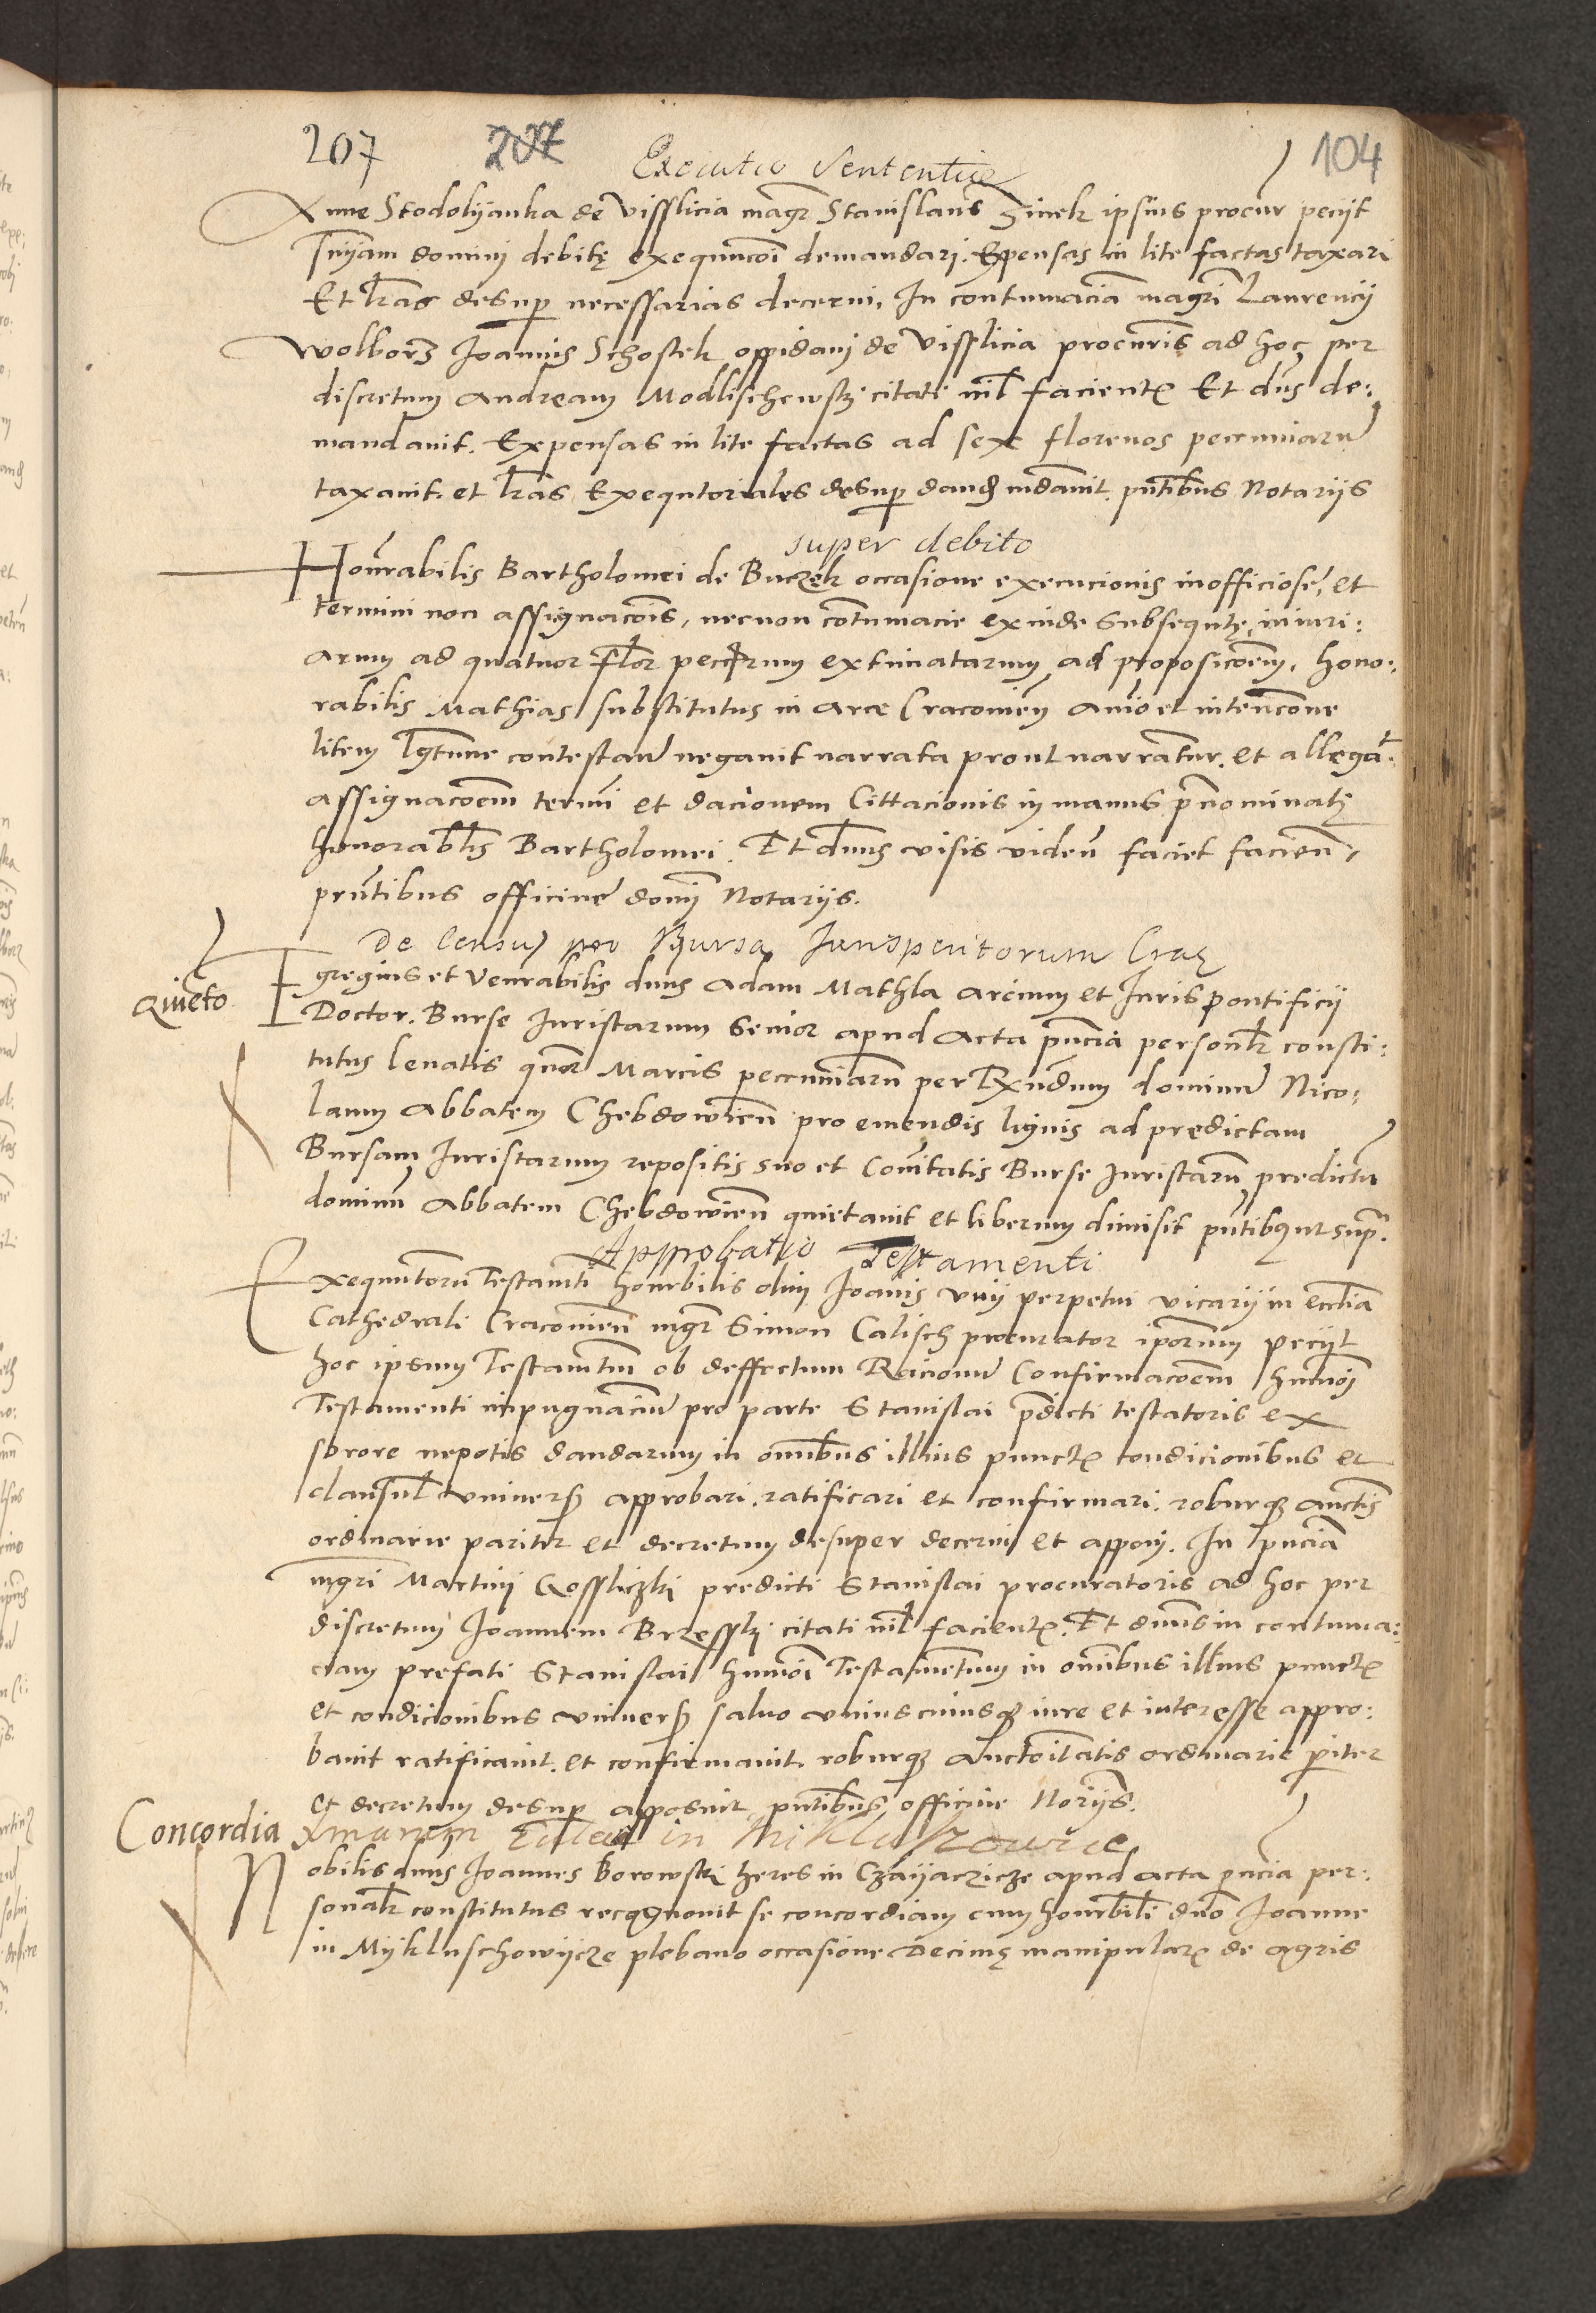 207 207 104
Executio Sententiae
Anne Stodolyanka de Visslicia magr Stanislaus Zinek ipsius procur peciit
sniam domini debitę exequuconi demandari. Expensas in lite factas taxari
Et lras desup necessarias decerni, In contumaciam magri Laurencij
Wolborz Joannis Schostek oppidani de Visslicia procuris ad hoc per
discretum Andream Modlischewskj citati nil facient Et dns de:
mandauit. Expensas in lite factas ad sex florenos pecuniaru
taxauit. et lras Exequtoriales desup dand mdauit. pntibus Notarijs
super debito
Honrabilis Bartholomei de Buczek occasione execucionis inofficiose, et
termini non assignacois, necnon contumacie exinde subsequtę, iniuri:
arum ad quatuor flor peccarum extimatarum ad proposicoem, hono:
rabilis Mathias substitutus in Arce Cracouien Animo et intencone
litem lgtime contestan negauit narrata prout narrantur. et allegat
assignacoem termi et dacionem Cittacionis in manus prenominati
honorablis Bartholomei. Et dnus visis viden faciet facien,
pntibus officine domj Notarijs.
De Censu pro Bursa Jurisperitorum Crac
Quieto
Egregius et Venrabilis dnus Adam Mathla arcium et Juris pontificij
Doctor. Burse Juristarum Senior apud Acta pncia personlr consti:
tutus leuatis quor Marcis pecuniaru per Rxndum dominu Nico:
laum Abbatem Chebdowien pro emendis lignis ad predictam
Bursam Juristarum repositis suo et Comitatis Burse Juristaru predictu
dominu Abbatem Chebdowien quietauit et liberum dimisit pntibq ut supra.
Approbatio Testamenti
Exequutoru Testamti honrbilis olim Joanis vnij perpetui vicarij in ecclia
Cathedrali Cracouien mgr Simon Calisch procurator ipsorum peciit
hoc ipsum Testamtum ob deffectum Racionu Confirmacoem hmoi
Testamenti impugnanciu pro parte Stanislai predicti testatoris ex
sorore nepotis dandarum in omibus illius punct condicionibus et
clausul vniuers approbari. ratificari et confirmari. roburq auctis
ordinarie pariter et decretum desuper decerni et apponj. In pncia
mgri Martini Gossliczki predicti Stanislai procuratoris ad hoc per
discretum Joannem Brzesskj citati nil facient. Et dnus in contuma:
ciam prefati Stanislai hmoi Testamentum in omibus illius punct
et condicionibus vniuers saluo vniuscuiusq iure et interesse appro:
bauit ratificauit. et confirmauit. roburq Auctoitatis ordinarie piter
et decretum desup apposuit pntibus officine Norijs.
Concordia
Nobilis dnus Joannes Borowski heres in Czaijaczicze apud acta pncia per:
sonalr constitutus recognouit se concordiam cum honrbili dno Joanne
in Mijkluschowijcze plebano occasione Decimę manipular de agris